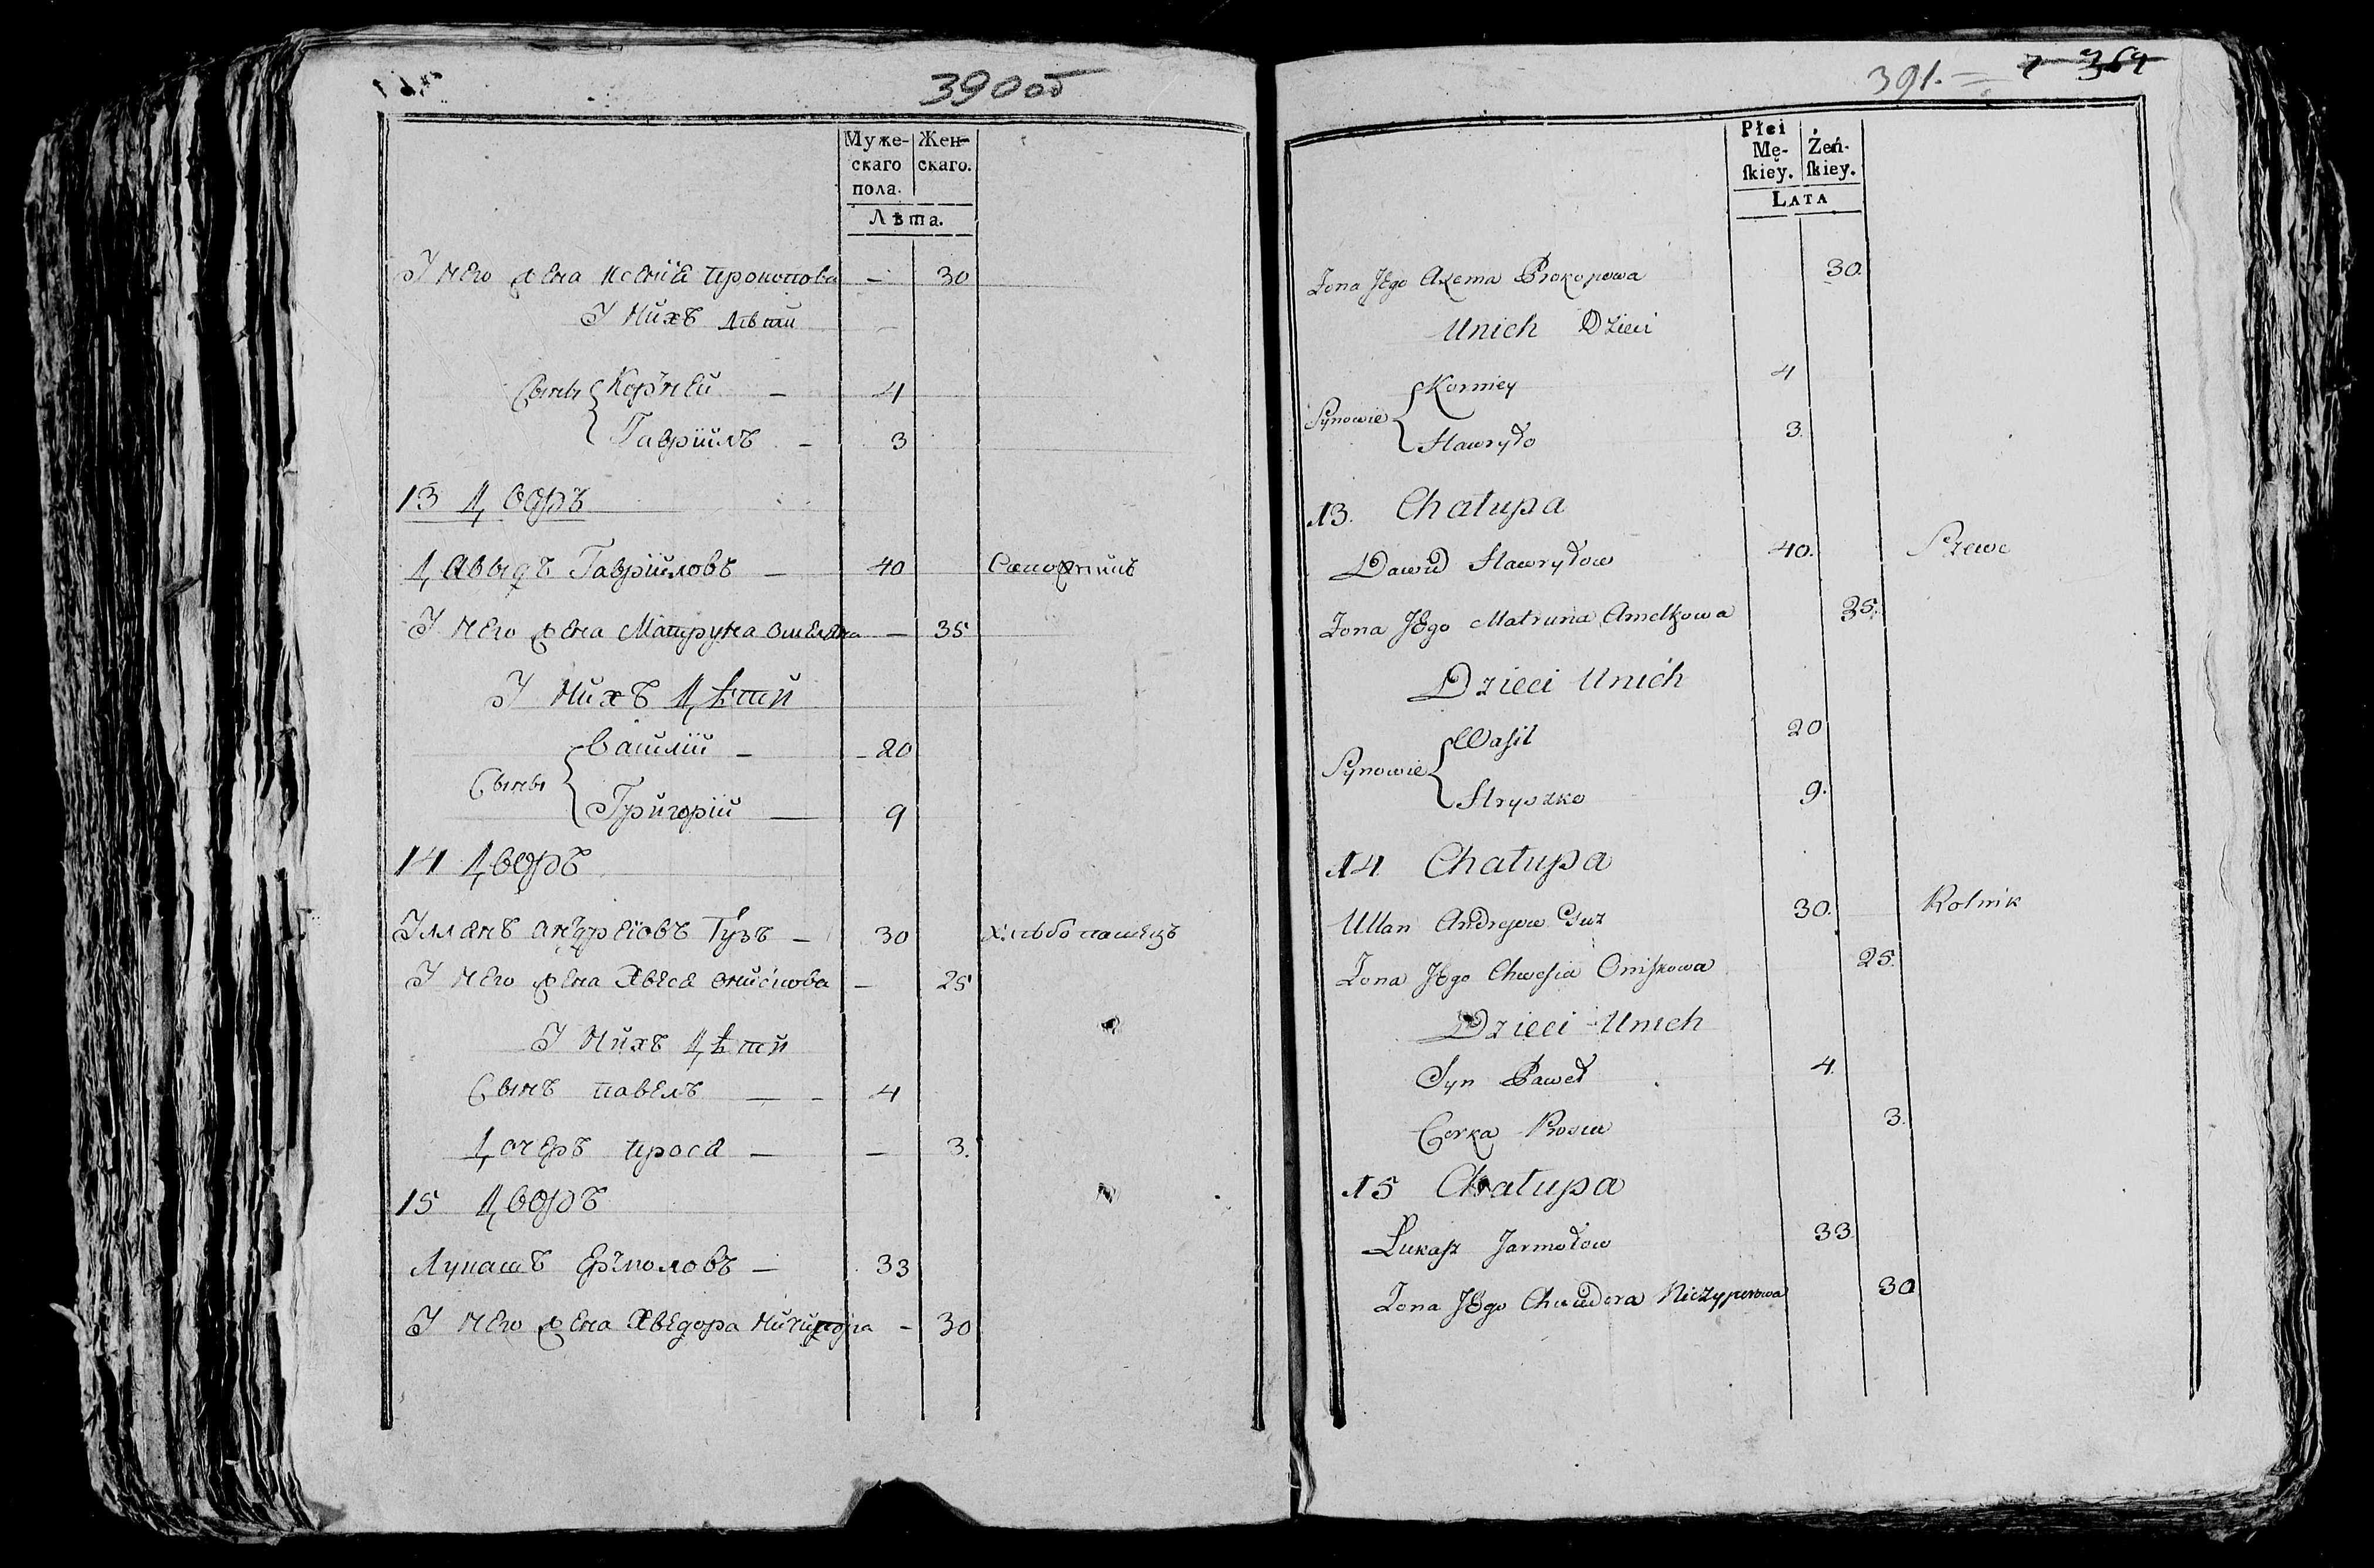 390 об
Муже-
скаго
пола.
Жен-
скаго.
Лѣта.
У него жена Ксенія Прокопова — 30
У нихъ дѣти
Сыны { Корней — 4
Гавріилъ — 3
13 Дворъ
Давыдъ Гавриловъ — 40 Сапожникъ
У него жена Матруна Омеляна — 35
У нихъ Дѣти
Василій — 20
Сыны {
Григорій — 9
14 Дворъ
Уланъ Андреіовъ Гузъ — 30 Хлѣбопашецъ
У него жена Хвеся Онискова — 25
У Нихъ Дѣти
Сынъ Павелъ — 4
Дочеръ Прося — — 3.
15 Дворъ
Лукашъ Ермоловъ — 33
У него жена Хведора Ничипора — 30
391. 364
Płci
Mę-
ſkiey.
Żeń-
ſkiey.
LATA
Zona JEgo Axema Prokopowa 30.
Unich Dzieci
Korniey 4
Synowie {
Hawryło 3.
13. Chałupa
Dawid Hawryłow 40. Szewc
Zona JEgo Matruna Amelkowa 35.
Dzieci Unich
Waſil 20
Synowie {
Hryszko 9.
14 Chałupa
Ullan Andrejow Guz 30. Rolnik
Zona JEgo Chweſia Oniſkowa 25.
Dzieci Unich
Syn Paweł 4.
Corka Prosia 3.
15 Chałupa
Łukaſz Jarmołow 33.
Zona JEgo Chwedora Niczyporowa 30